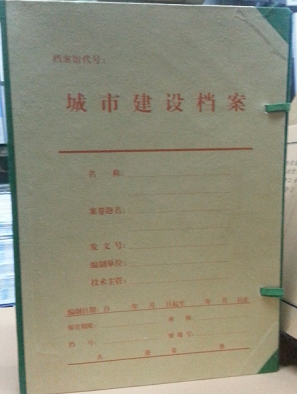 档案馆代号:
城市建设档案
名 称:
案卷题名:
发文号:
编制单位:
技术主管:
编制日期: 自 年 月 日起至 年 月 日止
保管期限: 密级:
档 号:
共 卷 第 卷